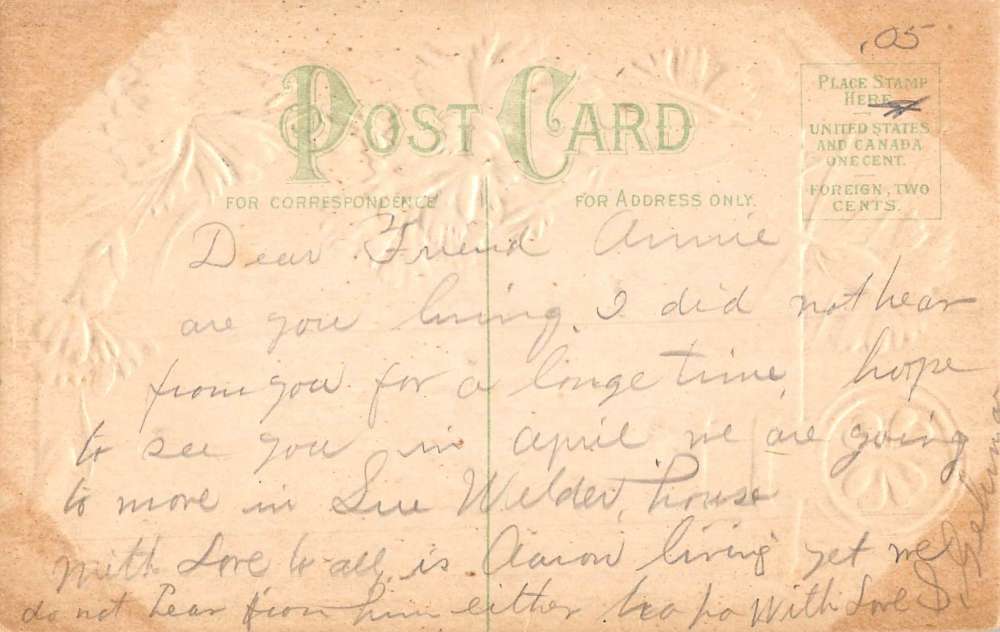 .05
POST CARD
PLACE STAMP
HERE
UNITED STATES
AND CANADA
ONE CENT.
FOREIGN, TWO
CENTS.
FOR CORRESPONDENCE
FOR ADDRESS ONLY.
Dear Friend Annie
are you living, I did not hear
from you for a longe time, hope
to see you in april we are going
to move in Sue Welder, house
with Love to all, is Aaron living yet we
do not hear from him either With Love S.